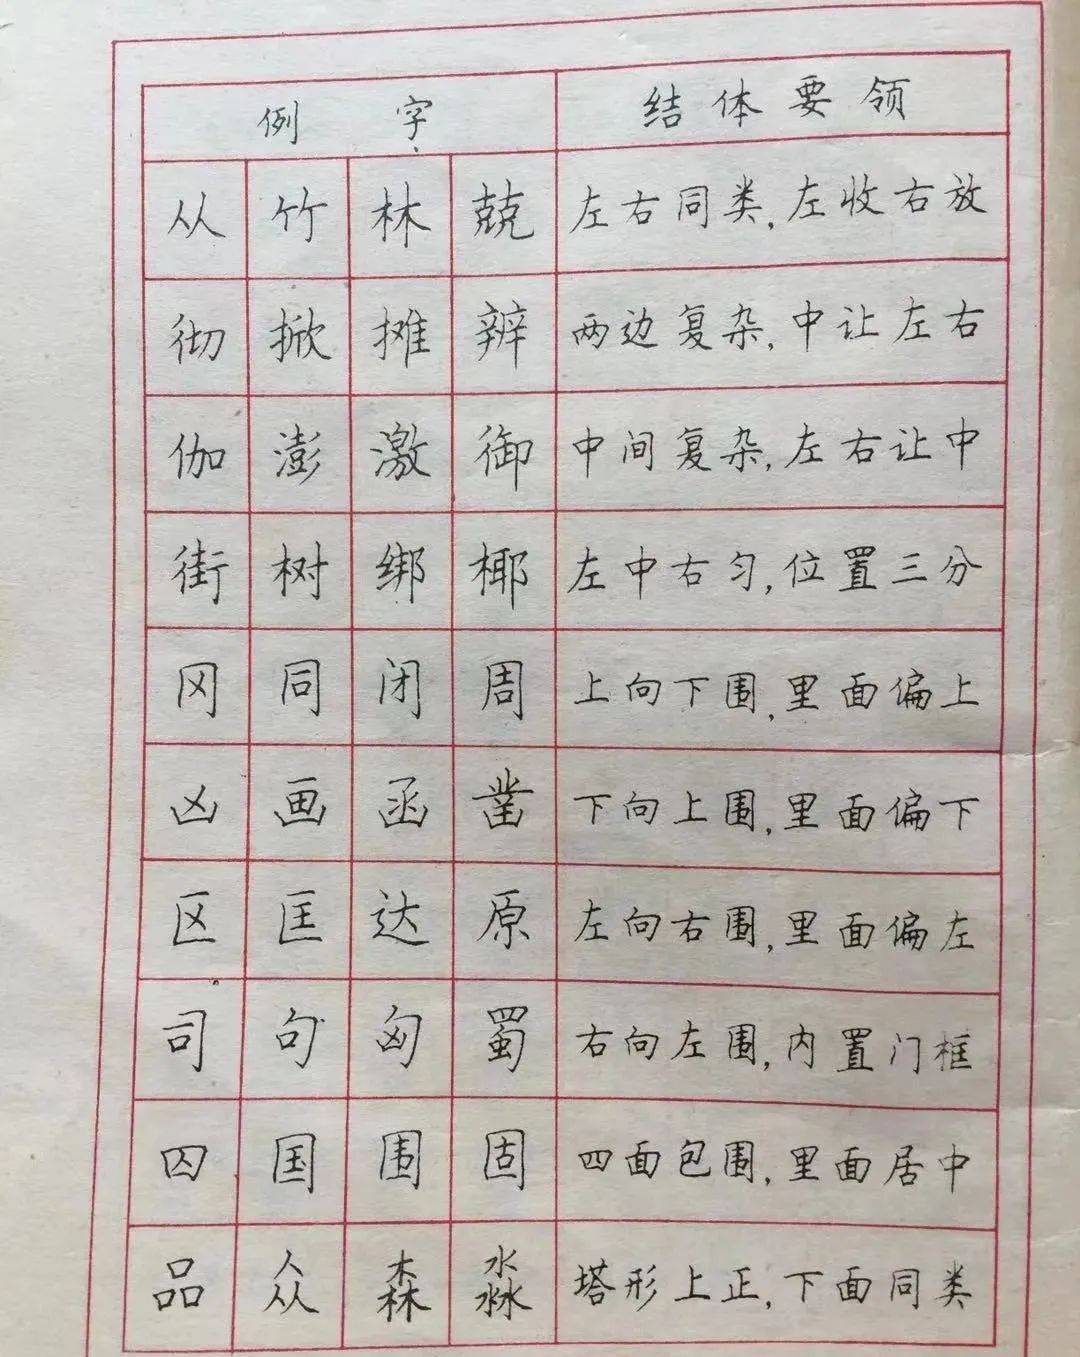 例 字 结体要领
从 竹 林 兢 左右同类,左收右放
彻 掀 摊 辨 两边复杂,中让左右
伽 澎 激 御 中间复杂,左右让中
街 树 绑 椰 左中右匀,位置三分
冈 同 闭 周 上向下围,里面偏上
凶 画 函 凿 下向上围,里面偏下
区 匡 达 原 左向右围,里面偏左
司 句 匈 蜀 右向左围,内置门框
囚 国 围 固 四面包围,里面居中
品 众 森 淼 塔形上正,下面同类